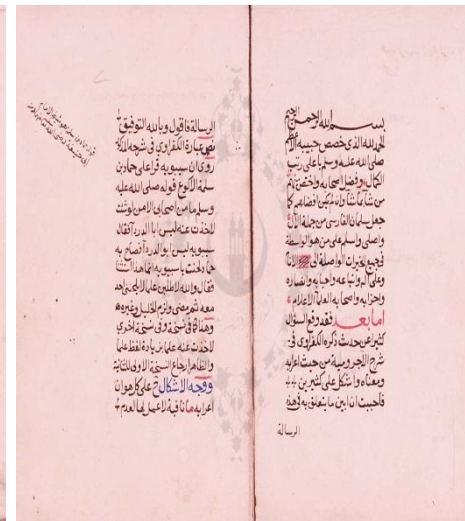 بسم الله الرحمن الرحيم
الحمد لله الذى خصص حبيبه الاعظم
صلى الله عليه وسلم باعلى رتب
الكمال وفضل اصحابه واختص
من شاء ما شاء وان لم يكن افضلهم كما
جعل سلمان الفارسى من جملة الآل
واصلى واسلم على من هو الواسطة
فى جميع الخيرات الواصلة الى الانام
وعلى آله واتباعه واحبابه وانصاره
واحزابه واصحابه العلماء الاعلام
اما بعد فقد وقع السؤال
كثيرا عن حديث ذكره الكفراوى فى
شرح الاجرومية من حيث اعرابه
ومعناه واشكل على كثيرين
فاجبت ان ابين ما يتعلق به فى هذه
الرسالة
الرسالة فاقول وبالله التوفيق
نص عبارة الكفراوى فى شرحه
روى ان سيبويه قرا على حماد بن
سلمة قوله صلى الله عليه
وسلم ما من اصحابى الا من لو شئت
لاخذت عنه ليس ابا الدرداء فقال
سيبويه ليس ابو الدرداء فصاح به
حماد لحنت يا سيبويه انما هذا استثناء
فقال والله لاطلبن علما لا يلحننى احد
معه ثم مضى ولزم الخليل وغيره
وهذا كما فى نسخة وفى نسخة اخرى
لاخذت عنه علما بزيادة لفظ علما
والظاهر ارجاع النسخة الاولى للثانية
ووجه الاشكال على كل هو ان
اعرابه ما نافية لا عمل لها لعدم